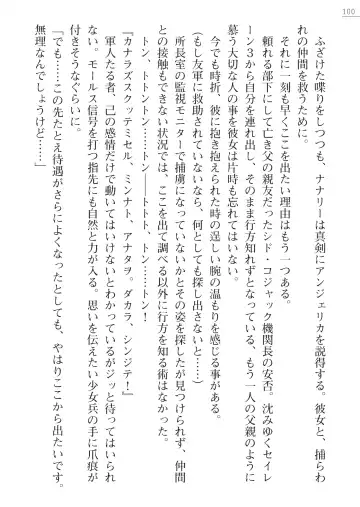 100
ふざけた喋りをしつつも、ナナリーは真剣にアンジェリカを説得する。彼女と、捕らわ
れの仲間を救うために。
それに一刻も早くここを出たい理由はもう一つある。
頼れる部下にして亡き父の親友だったシド・コジャック機関長の安否。沈みゆくセイレ
ーン３から自分を連れ出し、そのまま行方知れずとなっている、もう一人の父親のように
慕う大切な人の事を彼女は片時も忘れてはいない。
今でも時折、彼に抱き抱えられた時の逞しい腕の温もりを感じる事がある。
（もし友軍に救助されていないなら、何としても探し出さないと……）
所長室の監視モニターで捕虜になっていないかとその姿を探したが見つけられず、仲間
との接触もできない状況では、ここを出て調べる以外に行方を知る術はなかった。
トン、トトントン……トトト、トン……トン！
『カナラズスクッテミセル、ミンナト、アナタヲ。ダカラ、シンジテ！』
軍人たる者、己の感情だけで動いてはいけないとわかっているがジッと待ってはいられ
ない。モールス信号を打つ指先にも自然と力が入る。思いを伝えたい少女兵の手に爪痕が
付きそうなぐらいに。
「でも……この先たとえ待遇がさらによくなったとしても、やはりここから出たいです。
無理なんでしょうけど……」